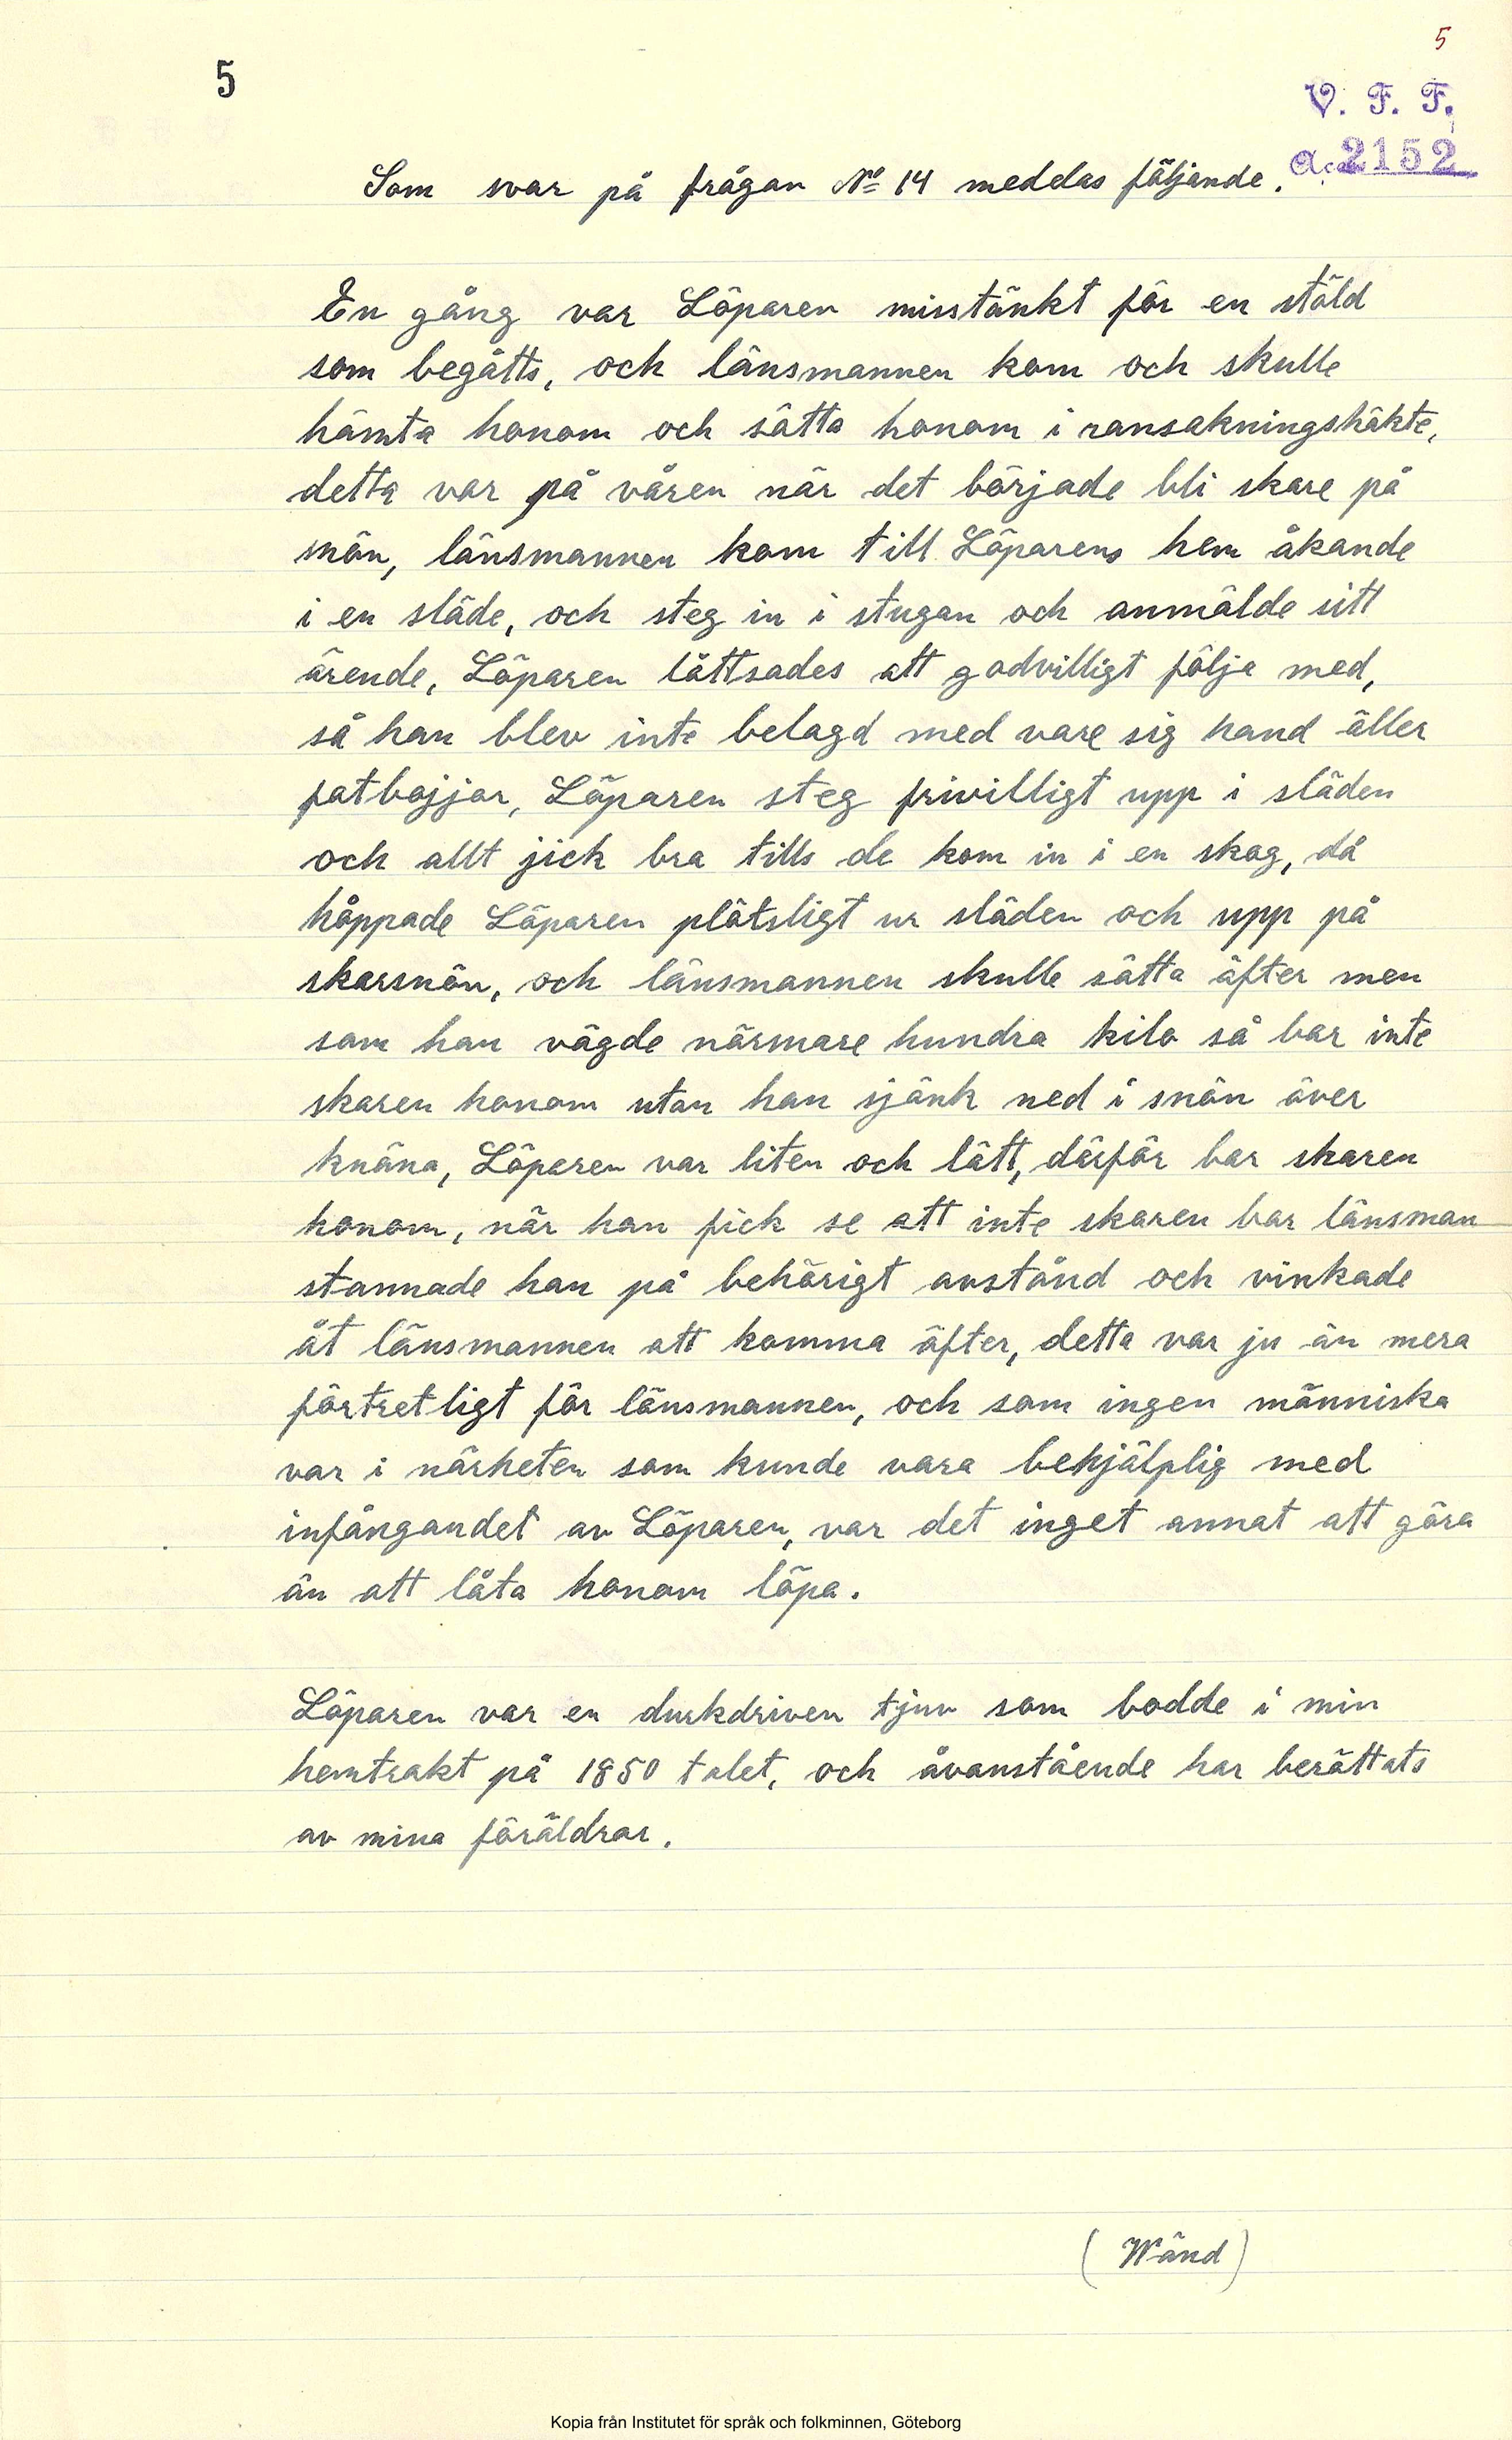 5
5
V. F. F.
Acc. 2152
Som svar på frågan No 14 meddelas följande.
En gång var Löparen misstänkt för en stöld
som begåtts, och länsmannen kom och skulle
hämta honom och sätta honom i ransakningshäkte,
detta var på våren när det började bli skare på
snön, länsmannen kom till Löparens hem åkande
i en släde, och steg in i stugan och anmälde sitt
ärende, Löparen låttsades att godvilligt följa med,
så han blev inte belagd med vare sig hand äller
fotbojjor, Löparen steg frivilligt upp i släden
och allt jick bra tills de kom in i en skog, då
håppade Löparen plötsligt ur släden och upp på
skarsnön, och länsmannen skulle sätta äfter men
som han vägde närmare hundra kilo så bar inte
skaren honom utan han sjönk ned i snön över
knäna, Löparen var liten och lätt, därför bar skaren
honom, när han fick se att inte skaren bar länsman
stannade han på behörigt avstånd och vinkade
åt länsmannen att komma äfter, detta var ju än mera
förtretligt för länsmannen, och som ingen människa
var i närheten som kunde vara behjälplig med
infångandet av Löparen, var det inget annat att göra
än att låta honom löpa.
Löparen var en durkdriven tjuv som bodde i min
hemtrakt på 1850 talet, och åvanstående har berättats
av mina föräldrar.
(Wänd)
Kopia från Institutet för språk och folkminnen, Göteborg